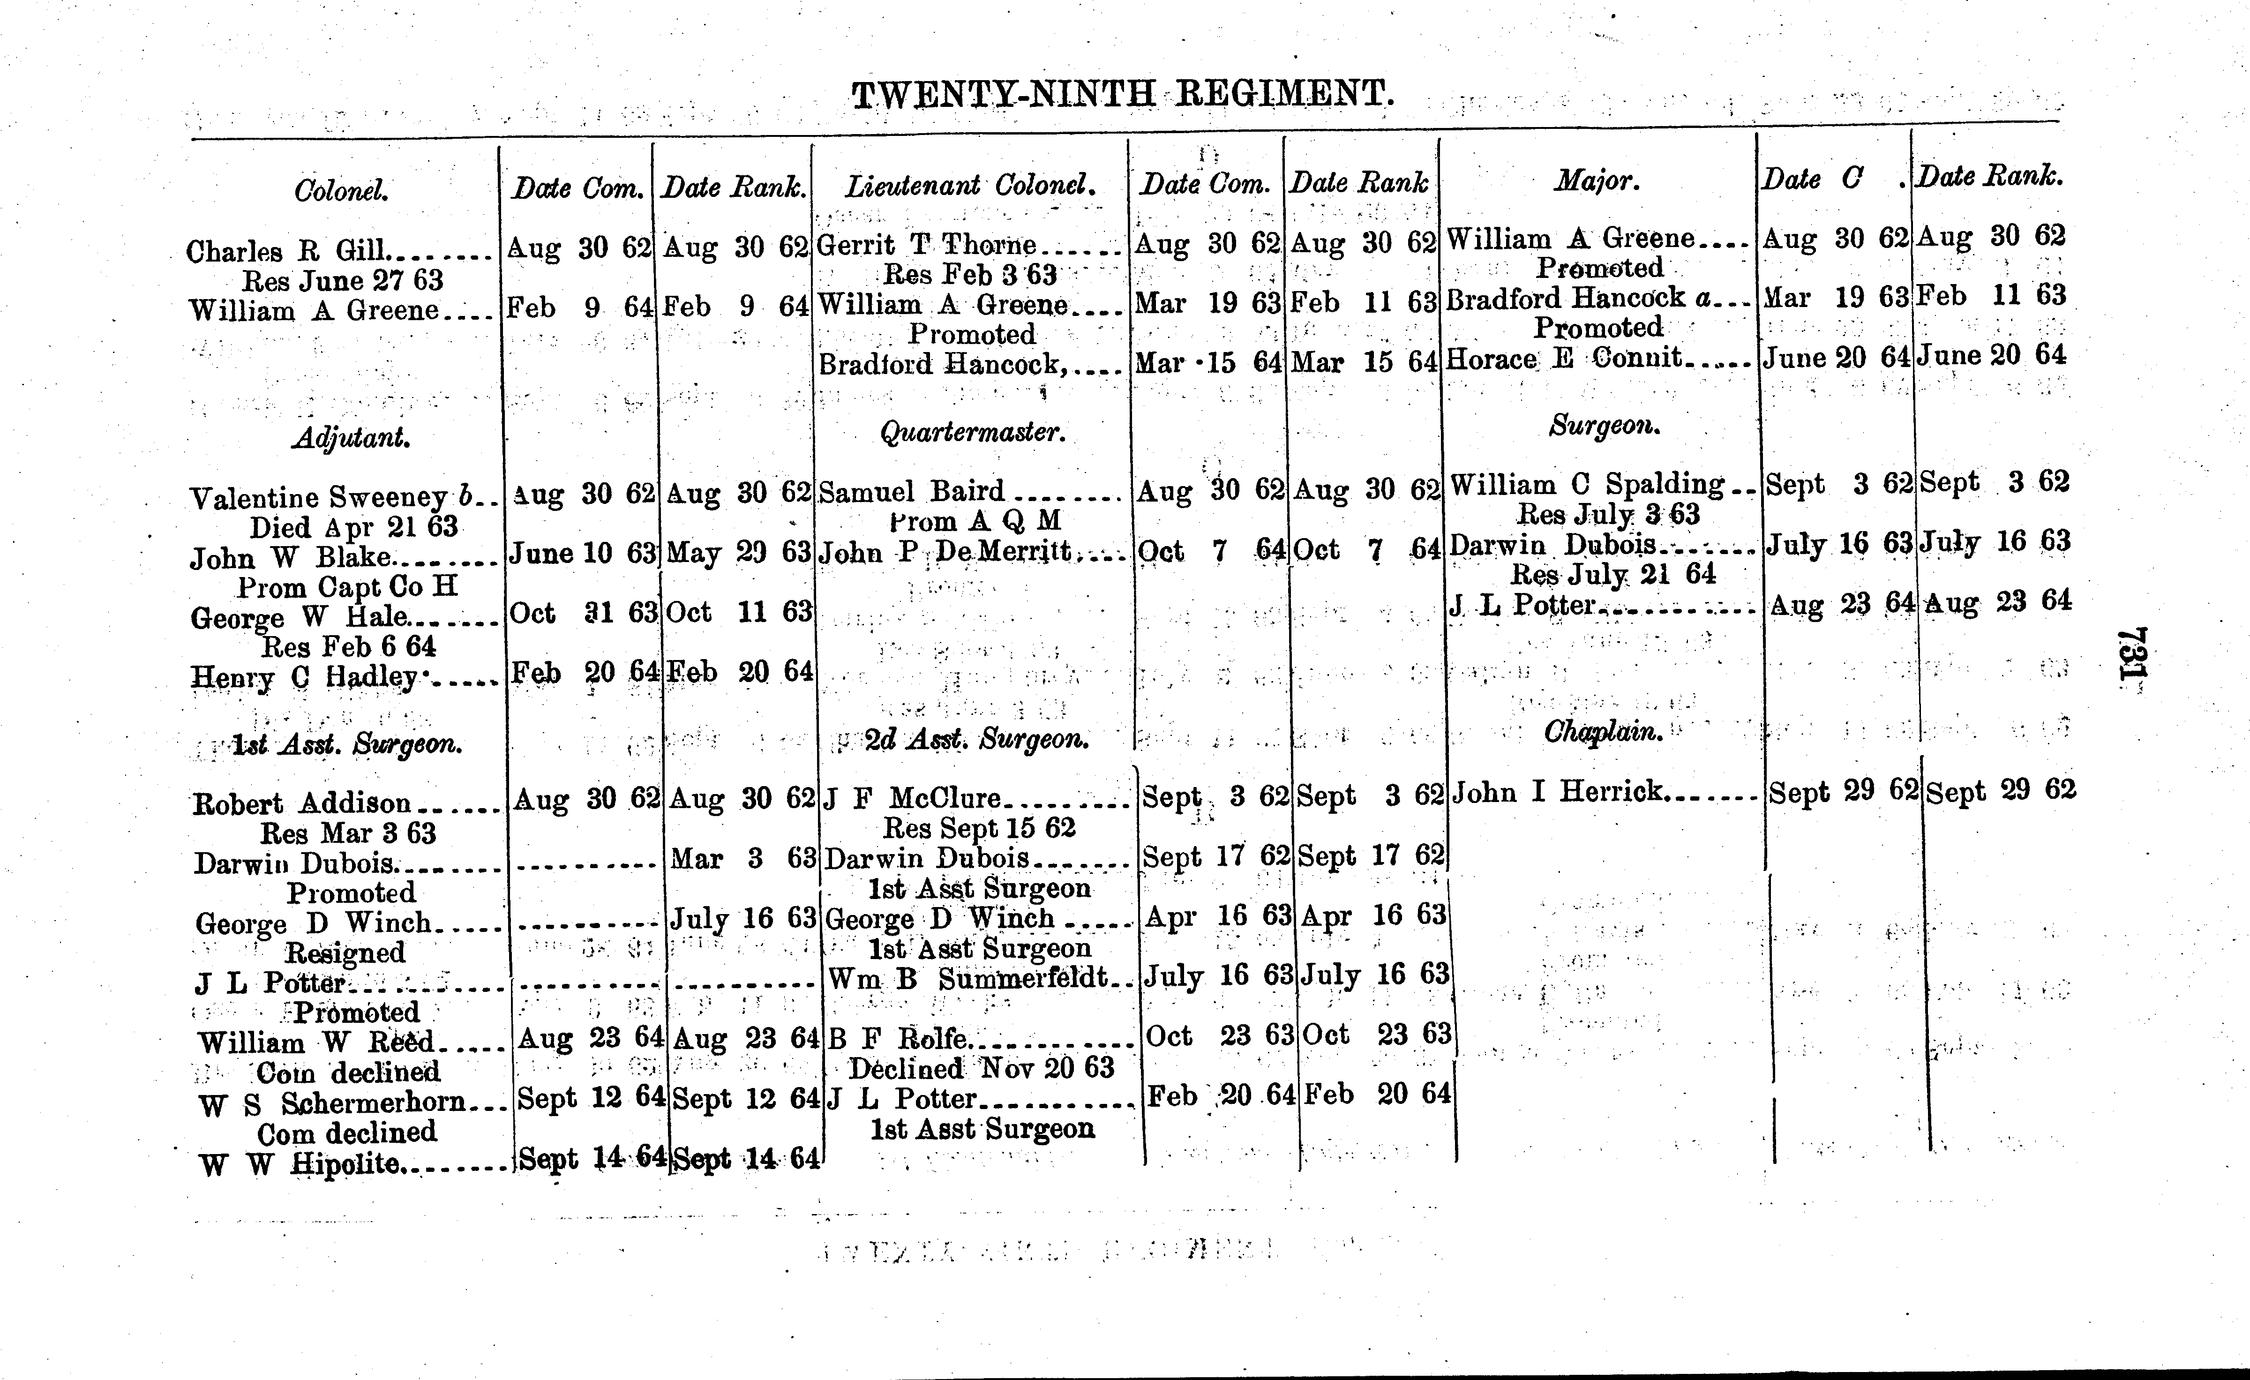 TWENTY-NINTH REGIMENT.
Colonel. Date Com. Date Rank. Lieutenant Colonel. Date Com. Date Rank Major. Date C . Date Rank.
Charles R Gill........ Aug 30 62 Aug 30 62 Gerrit T Thorne...... Aug 30 62 Aug 30 62 William A Greene.... Aug 30 62 Aug 30 62
Res June 27 63 Res Feb 3 63 Promoted
William A Greene.... Feb 9 64 Feb 9 64 William A Greene.... Mar 19 63 Feb 11 63 Bradford Hancock a... Mar 19 63 Feb 11 63
Promoted Promoted
Bradford Hancock,.... Mar 15 64 Mar 15 64 Horace E Connit...... June 20 64 June 20 64
Adjutant. Quartermaster. Surgeon.
Valentine Sweeney b.. Aug 30 62 Aug 30 62 Samuel Baird ........ Aug 30 62 Aug 30 62 William C Spalding.. Sept 3 62 Sept 3 62
Died Apr 21 63 Prom A Q M Res July 3 63
John W Blake........ June 10 63 May 29 63 John P DeMerritt.... Oct 7 64 Oct 7 64 Darwin Dubois........ July 16 63 July 16 63
Prom Capt Co H Res July 21 64
George W Hale....... Oct 31 63 Oct 11 63 J L Potter............ Aug 23 64 Aug 23 64
Res Feb 6 64
Henry C Hadley...... Feb 20 64 Feb 20 64
731
1st Asst. Surgeon. 2d Asst. Surgeon. Chaplain.
Robert Addison...... Aug 30 62 Aug 30 62 J F McClure.......... Sept 3 62 Sept 3 62 John I Herrick....... Sept 29 62 Sept 29 62
Res Mar 3 63 Res Sept 15 62
Darwin Dubois........ .......... Mar 3 63 Darwin Dubois........ Sept 17 62 Sept 17 62
Promoted 1st Asst Surgeon
George D Winch..... .......... July 16 63 George D Winch ..... Apr 16 63 Apr 16 63
Resigned 1st Asst Surgeon
J L Potter............ .......... .......... Wm B Summerfeldt.. July 16 63 July 16 63
Promoted
William W Reed..... Aug 23 64 Aug 23 64 B F Rolfe............ Oct 23 63 Oct 23 63
Com declined Declined Nov 20 63
W S Schermerhorn... Sept 12 64 Sept 12 64 J L Potter............ Feb 20 64 Feb 20 64
Com declined 1st Asst Surgeon
W W Hipolite........ Sept 14 64 Sept 14 64